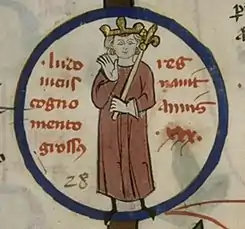 · ludo
uicus
cogno
mento
grossus
reg
nauit
annis
·xxx·
28